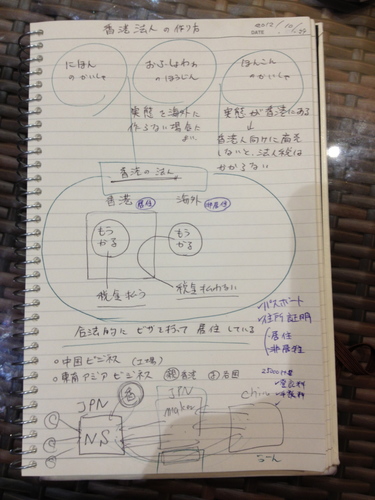 香港法人の作り方
DATE 2012/10/29
にほんのかいしゃ
おふしょあのほうじん
ほんこんのかいしゃ
実態を海外に
作らない場合に
よい
実態が香港にある
↓
香港人向けに商売
しないと、法人税は
かからない
香港の法人
香港 居住
海外 非居住
もうかる
もうかる
税金払う
税金払わない
合法的にビザを持って居住している
・パスポート
・住所証明
・居住
・非居住
○中国ビジネス (工場)
○東南アジアビジネス
香港
各国
JPN
JPN
China
NS